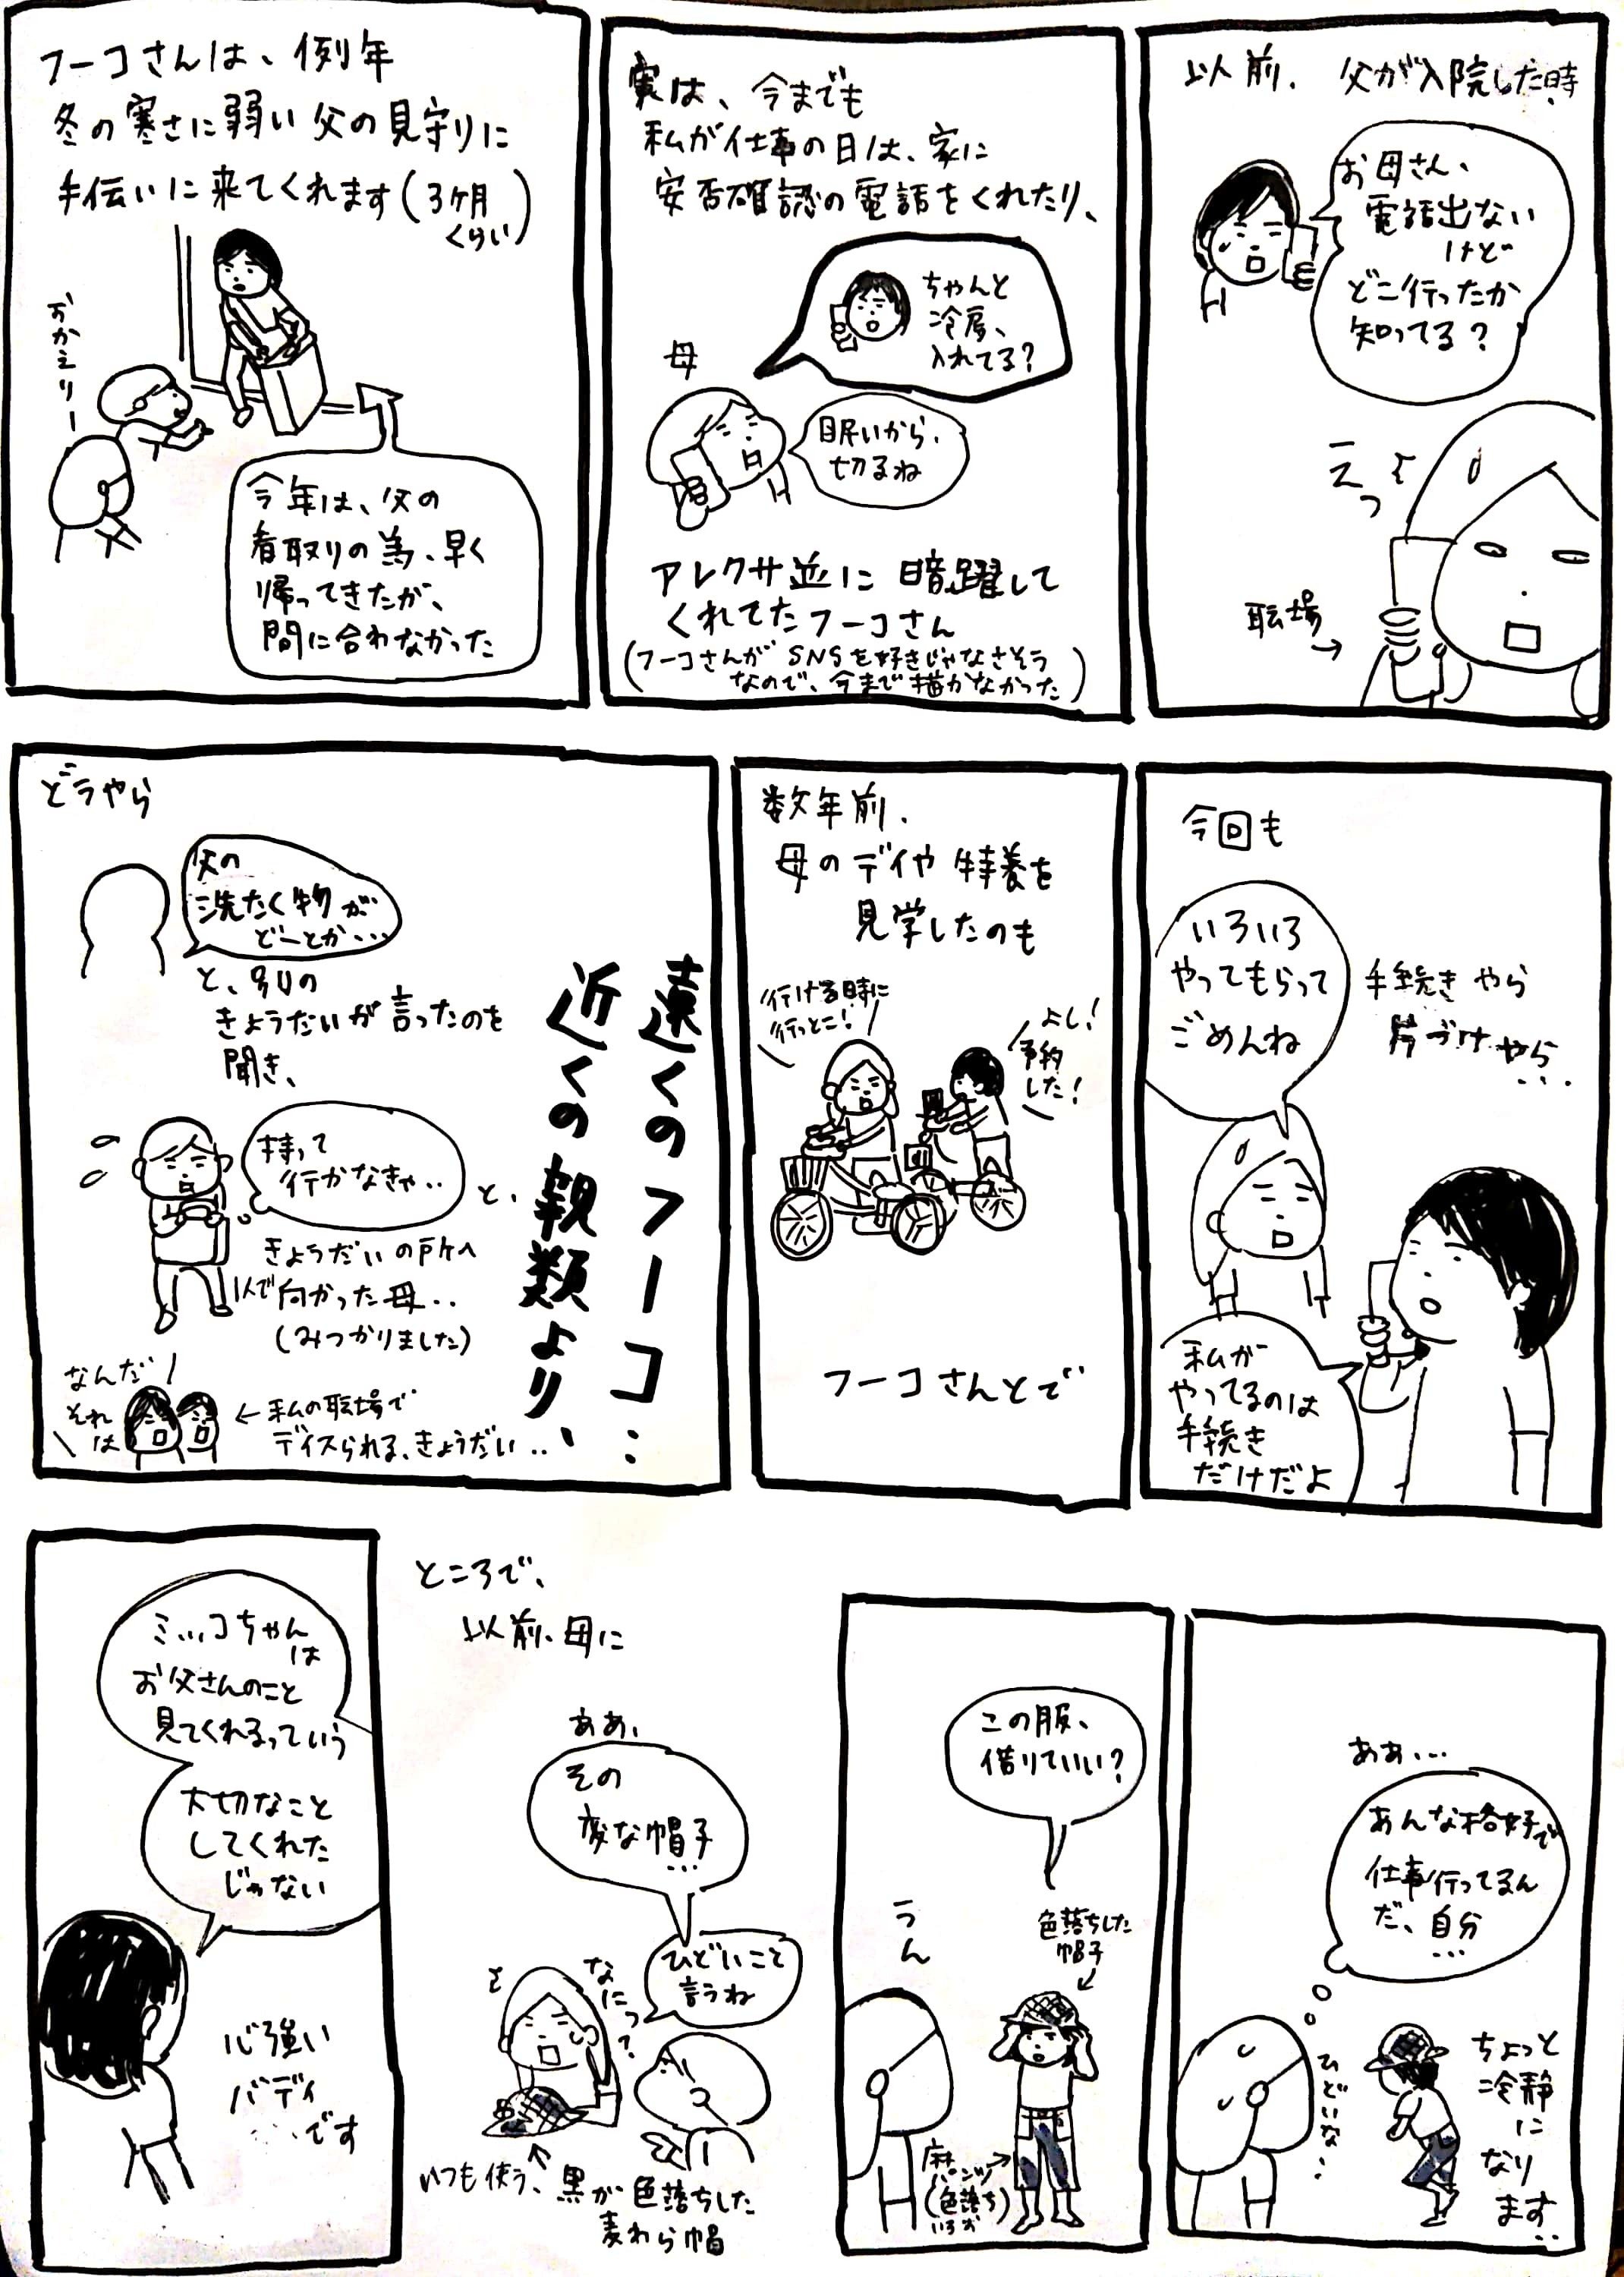 フーコさんは、例年
冬の寒さに弱い父の見守りに
手伝いに来てくれます(3ヶ月
くらい)
おかえりー
今年は、父の
看取りの為、早く
帰ってきたが、
間に合わなかった
実は、今までも
私が仕事の日は、家に
安否確認の電話をくれたり、
ちゃんと
冷房、
入れてる?
母
眠いから、
切るね
アレクサ並に暗躍して
くれてたフーコさん
(フーコさんがSNSを好きじゃなさそう
なので、今まで描かなかった)
以前、父が入院した時
お母さん、
電話出ない
けど
どこ行ったか
知ってる?
えっ
職場
どうやら
父の
洗たく物が
どーとか…
と、別の
きょうだいが言ったのを
聞き、
持って
行かなきゃ..
と、
きょうだいの所へ
1人で向かった母..
(みつかりました)
なんだ
それ
は
←私の職場で
ディスられる、きょうだい..
遠くのフーコ..
近くの親類より、
数年前、
母のデイや特養を
見学したのも
行ける時に
行っとこ!
よし!
予約
した!
フーコさんとで
今回も
いろいろ
やってもらって
ごめんね
手続きやら
片づけやら…
私が
やってるのは
手続き
だけだよ
ミッコちゃん
は
お父さんのこと
見てくれるっていう
大切なこと
してくれた
じゃない
心強い
バディ
…です
ところで、
以前、母に
ああ、
その
変な帽子…
なにっ?
ひどいこと
言うね
いつも使う、黒が色落ちした
麦わら帽
この服、
借りていい?
うん
色落ちした
帽子
麻
パンツ
(色落ち)
ああ…
あんな格好で
仕事行ってるん
だ、自分…
ひどいな..
ちょっと
冷静
に
なり
ます..